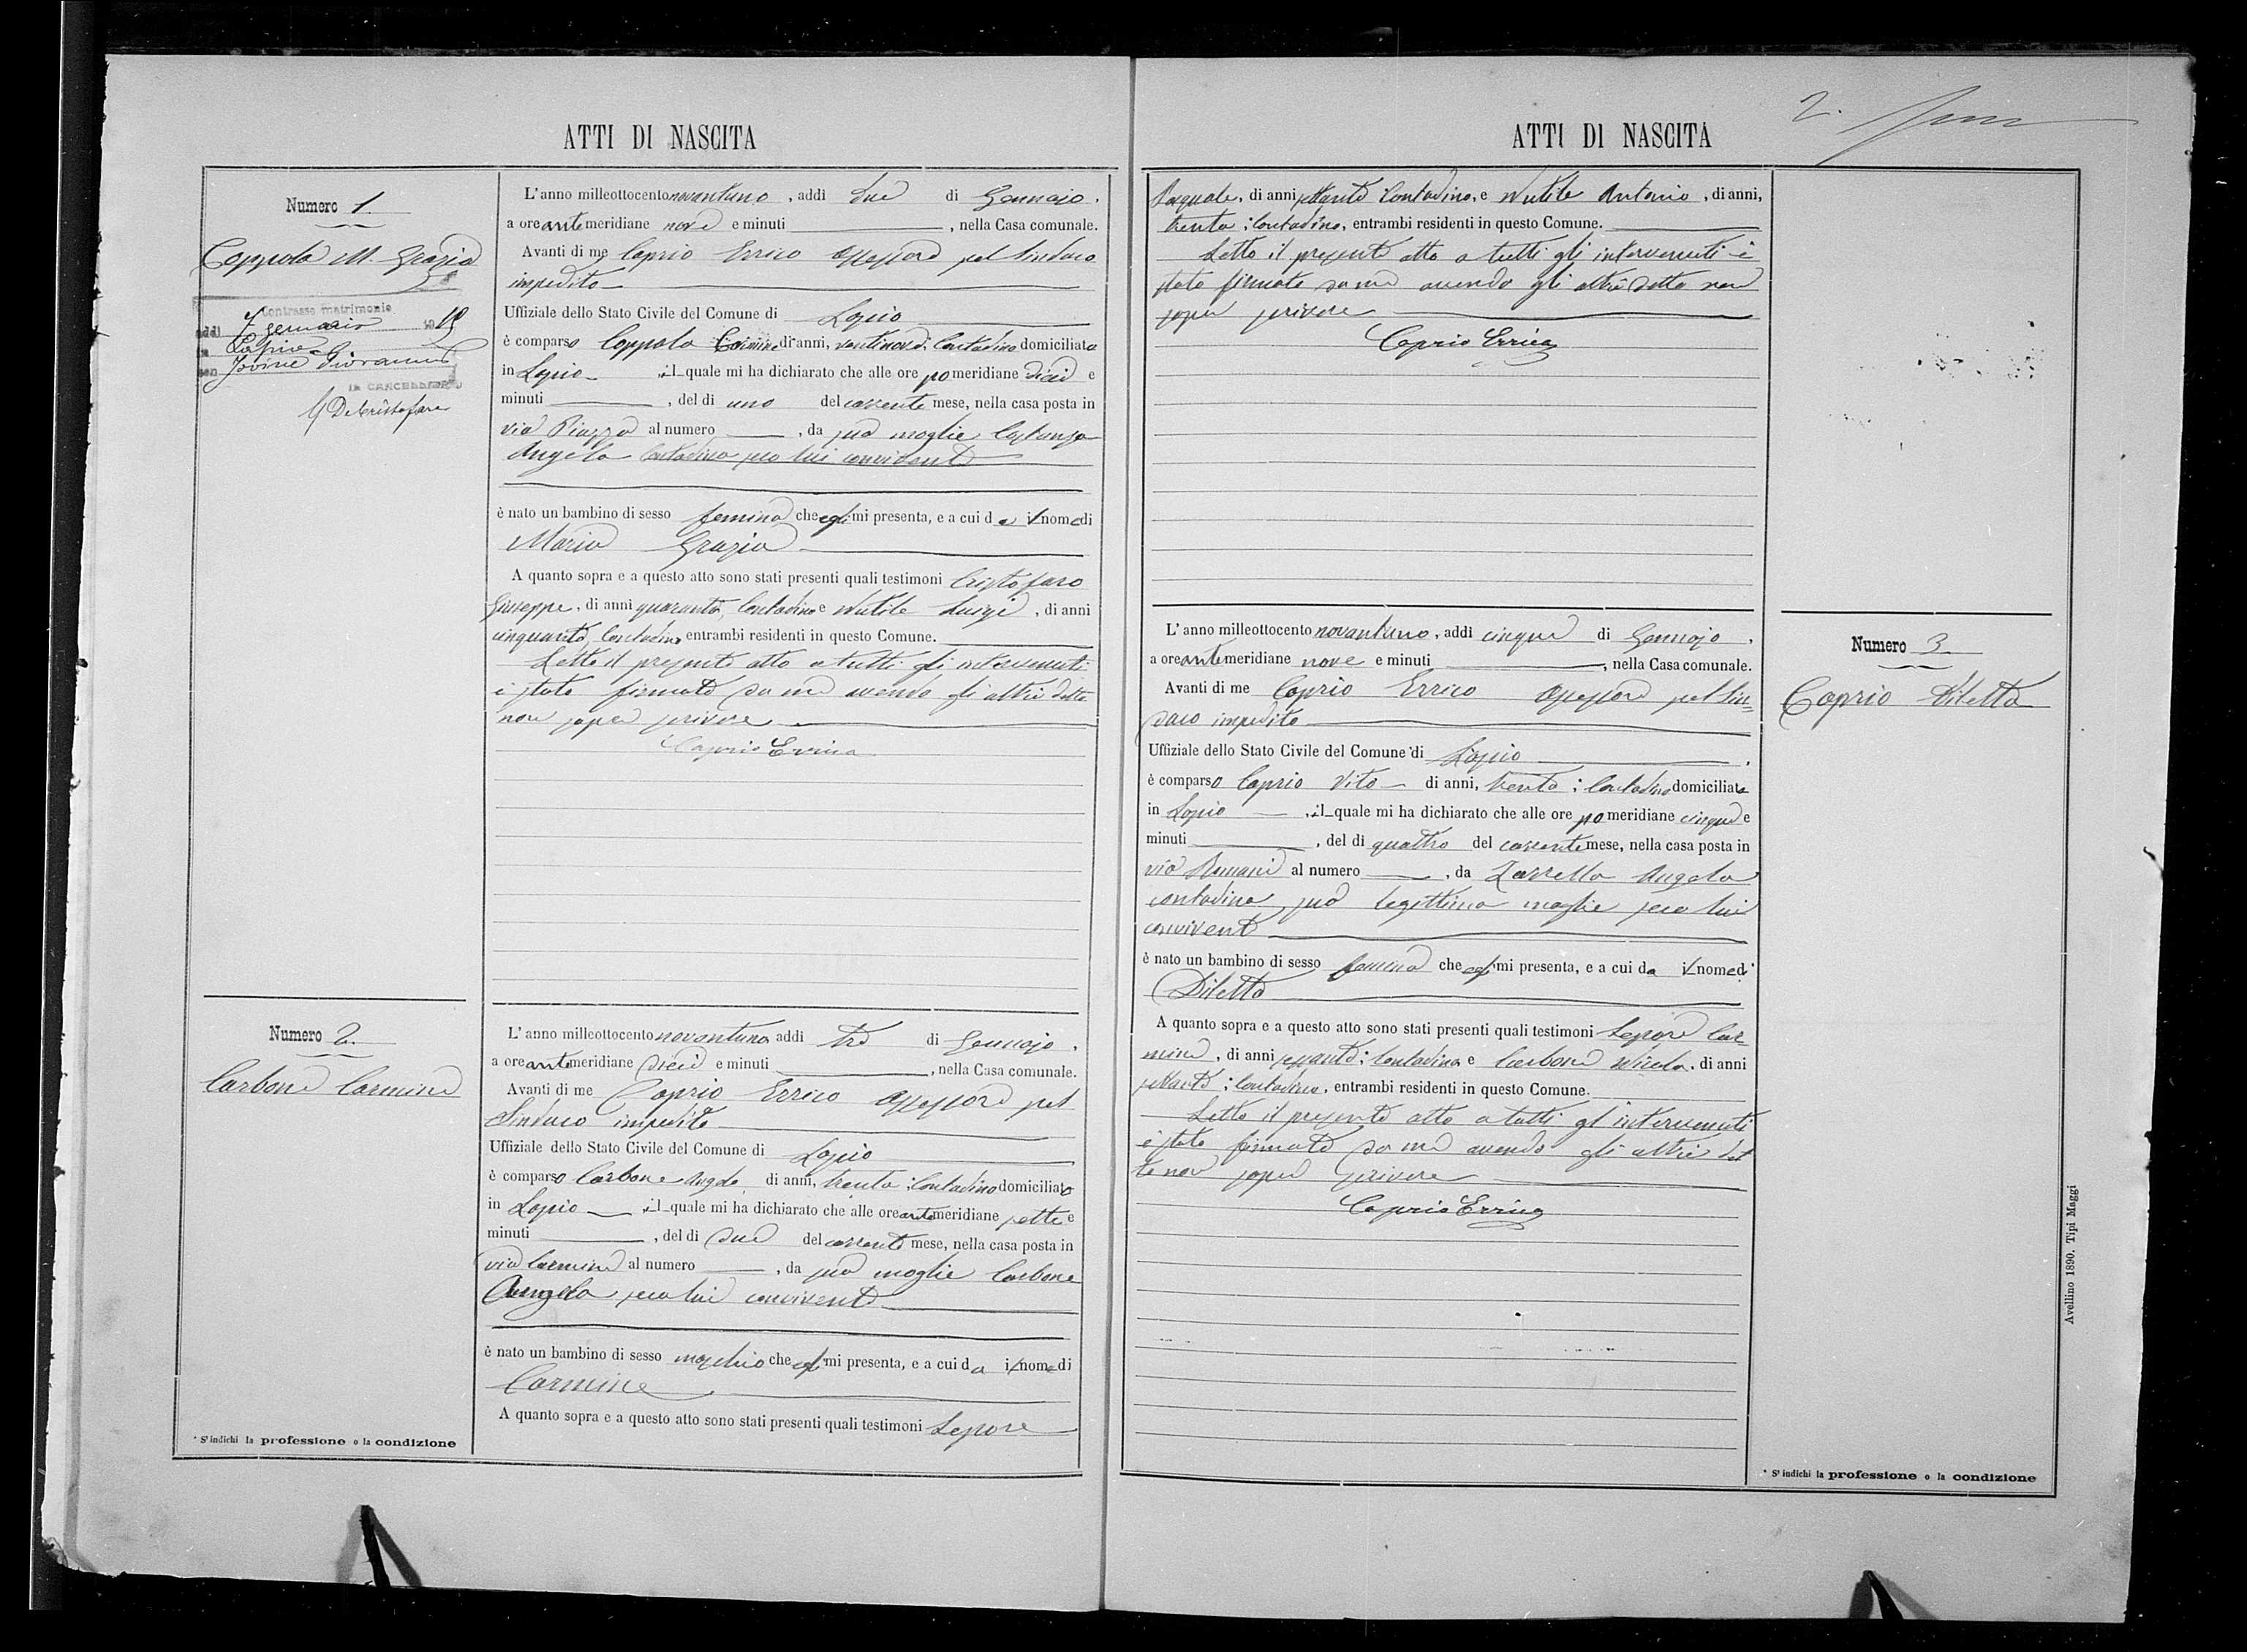 ATTI DI NASCITA
Numero 1.
Coppola M. Grazia
Contrasse matrimonio
addì 7 gennaio 1919
in Lapio
con Iovine Giovanni
IL CANCELLIERE
De Cristofaro
L'anno milleottocento novantuno, addì due di Gennajo,
a ore antemeridiane nove e minuti , nella Casa comunale.
Avanti di me Caprio Errico Assessore pel Sindaco
impedito
Uffiziale dello Stato Civile del Comune di Lapio
è comparso Coppola Carmine di anni, ventinove; Contadino domiciliato
in Lapio , il quale mi ha dichiarato che alle ore pomeridiane dieci e
minuti , del dì uno del corrente mese, nella casa posta in
via Piazza al numero , da sua moglie Costanza
Angela Contadina seco lui convivente
è nato un bambino di sesso femina che egli mi presenta, e a cui da i nome di
Maria Grazia
A quanto sopra e a questo atto sono stati presenti quali testimoni Cristofaro
Giuseppe, di anni quaranta, Contadino e Nutile Luigi, di anni
cinquanta, Contadino entrambi residenti in questo Comune.
Letto il presente atto a tutti gli intervenuti
è stato firmato da me avendo gli altri detto
non saper scrivere
Caprio Errico
Numero 2.
Carbone Carmine
L'anno milleottocento novantuno addì tre di Gennajo,
a ore antemeridiane dieci e minuti , nella Casa comunale.
Avanti di me Caprio Errico Assessore pel
Sindaco impedito
Uffiziale dello Stato Civile del Comune di Lapio
è comparso Carbone Angelo di anni, trenta; Contadino domiciliato
in Lapio , il quale mi ha dichiarato che alle ore antemeridiane sette e
minuti , del dì due del corrente mese, nella casa posta in
via Carmine al numero , da sua moglie Carbone
Angela seco lui convivente
è nato un bambino di sesso maschio che egli mi presenta, e a cui da i nome di
Carmine
A quanto sopra e a questo atto sono stati presenti quali testimoni Lepore
* S'indichi la professione o la condizione
ATTI DI NASCITA
2.
Pasquale, di anni settanta Contadino, e Nutile Antonio, di anni,
trenta; Contadino, entrambi residenti in questo Comune.
Letto il presente atto a tutti gli intervenuti è
stato firmato da me avendo gli altri detto non
saper scrivere
Caprio Errico
L'anno milleottocento novantuno, addì cinque di Gennajo,
a ore antemeridiane nove e minuti , nella Casa comunale.
Avanti di me Caprio Errico Assessore pel Sin=
daco impedito
Uffiziale dello Stato Civile del Comune di Lapio
è comparso Caprio Vito di anni, trenta; Contadino domiciliato
in Lapio , il quale mi ha dichiarato che alle ore pomeridiane cinque e
minuti , del dì quattro del corrente mese, nella casa posta in
via Romani al numero , da Zarrella Angela
contadina, sua legittima moglie seco lui
convivente
è nato un bambino di sesso femina che egli mi presenta, e a cui da i nome di
Diletta
A quanto sopra e a questo atto sono stati presenti quali testimoni Lepore Car-
mine, di anni sessanta; Contadino e Carbone Nicola, di anni
settanta; Contadino, entrambi residenti in questo Comune.
Letto il presente atto a tutti gl'intervenuti
è stato firmato da me avendo gli altri det
to non saper scrivere
Caprio Errico
Numero 3.
Caprio Diletta
* S'indichi la professione o la condizione
Avellino 1890. Tipi Maggi